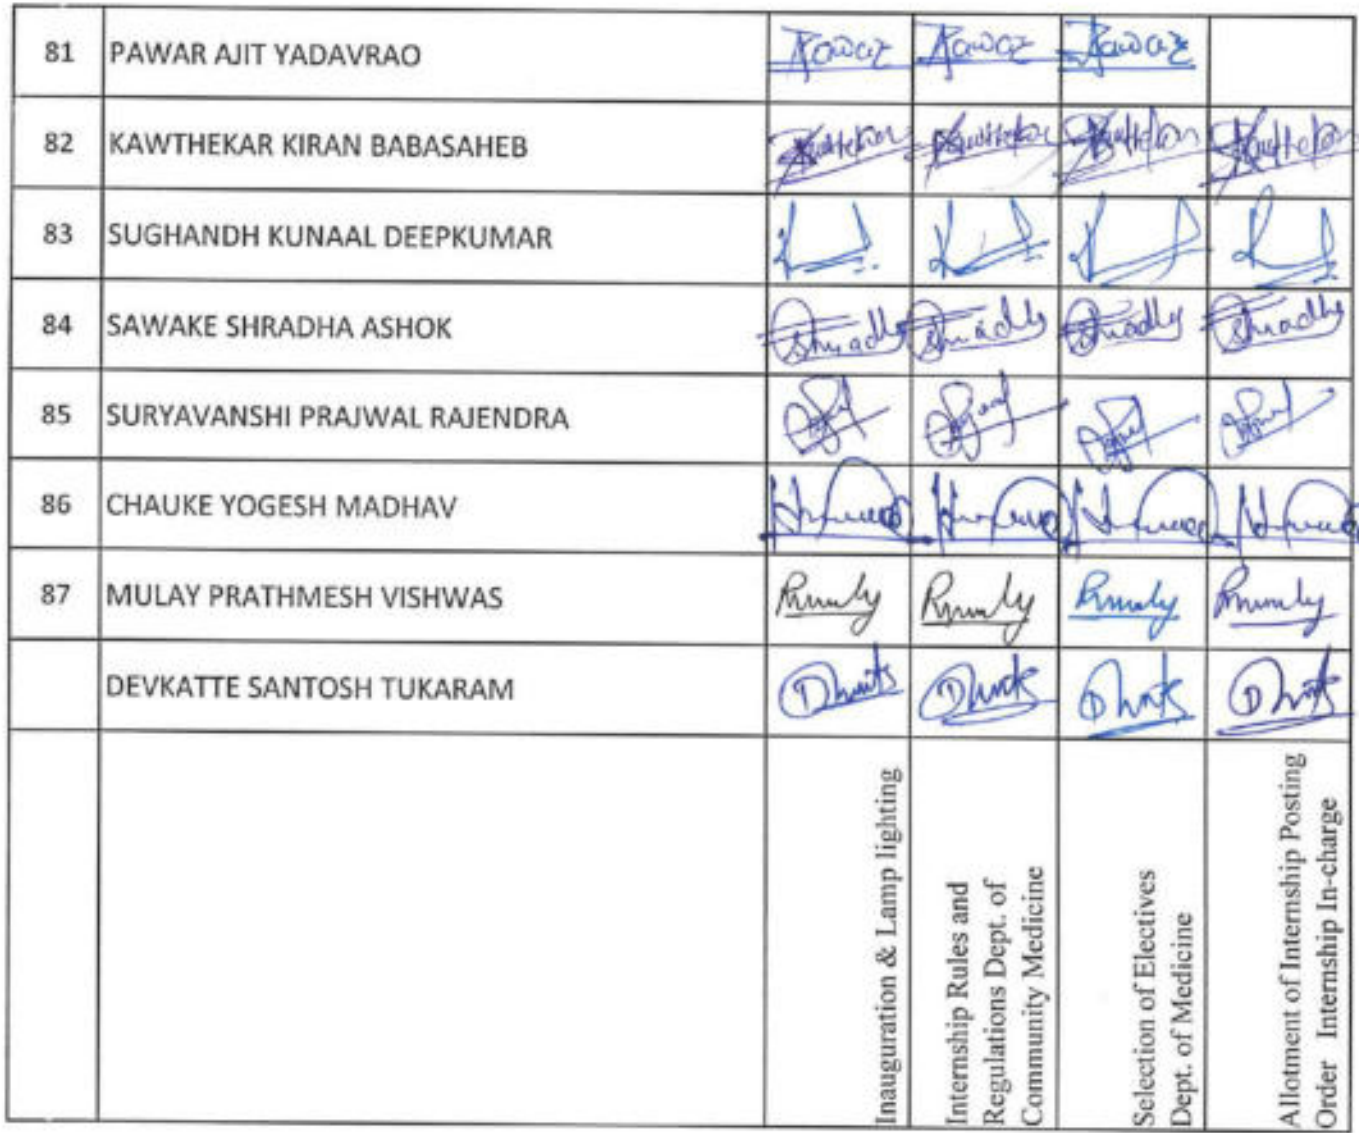 81 PAWAR AJIT YADAVRAO Pawar Pawar Pawar
82 KAWTHEKAR KIRAN BABASAHEB Kawthekar Kawthekar Kawthekar Kawthekar
83 SUGHANDH KUNAAL DEEPKUMAR
84 SAWAKE SHRADHA ASHOK Shradha Shradha Shradha Shradha
85 SURYAVANSHI PRAJWAL RAJENDRA
86 CHAUKE YOGESH MADHAV
87 MULAY PRATHMESH VISHWAS
DEVKATTE SANTOSH TUKARAM
Inauguration & Lamp lighting
Internship Rules and
Regulations Dept. of
Community Medicine
Selection of Electives
Dept. of Medicine
Allotment of Internship Posting
Order Internship In-charge